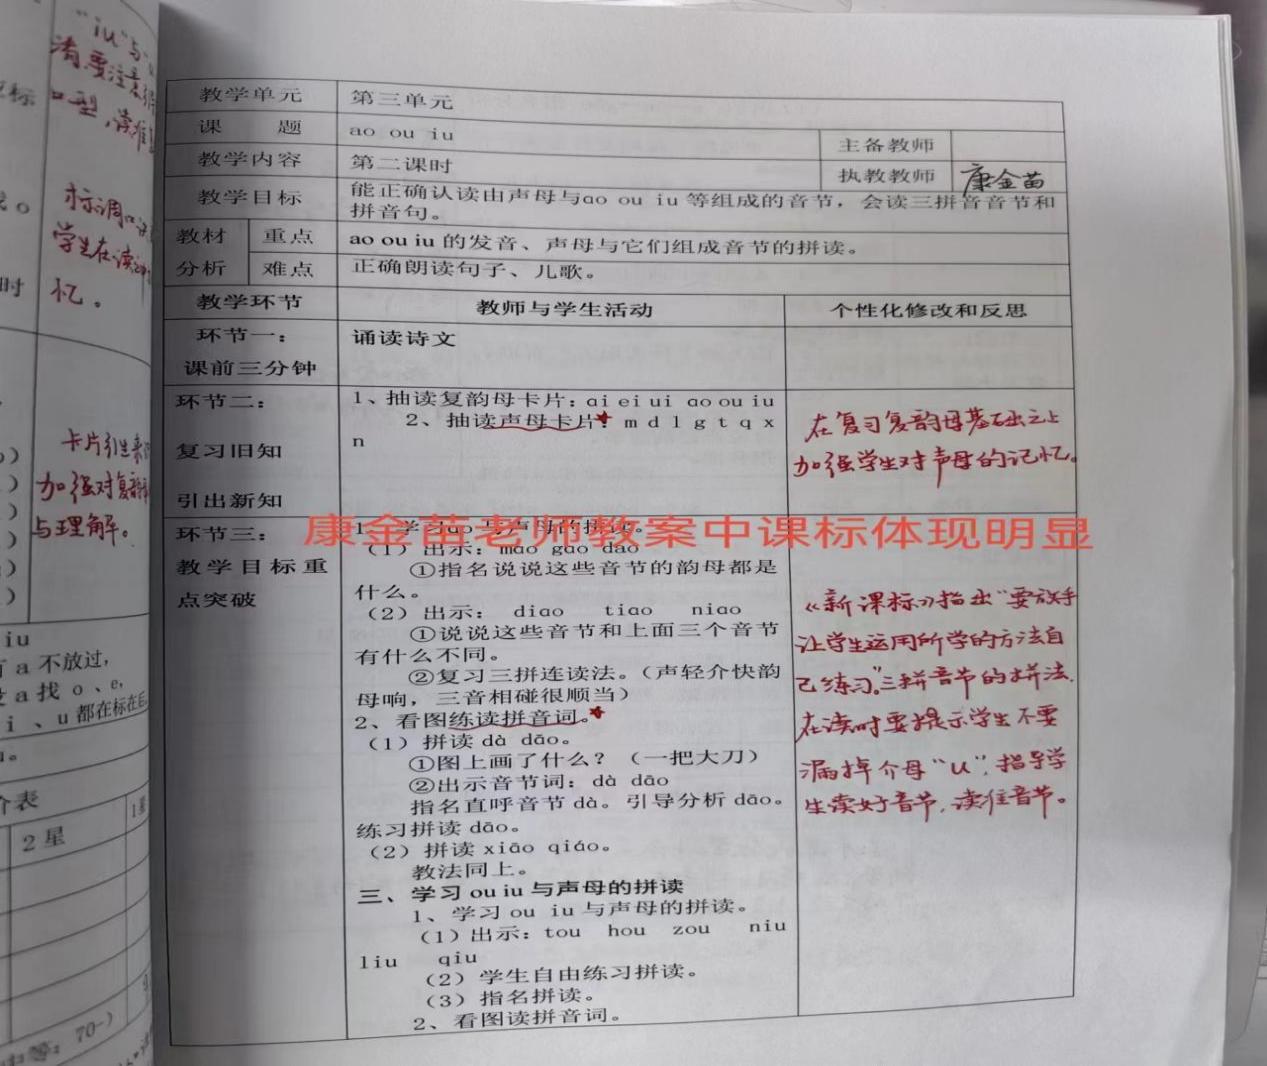 "iu"与
口型，读准
标调口诀
学生在读
忆。
卡片引生来
加强对复韵
与理解。
iu
有 a 不放过，
没 a 找 o 、e，
i 、u 都在标在后
价表
2 星
1星
70-)
教学单元 第三单元
课 题 ao ou iu 主备教师
教学内容 第二课时 执教教师 康金苗
教学目标 能正确认读由声母与ao ou iu 等组成的音节，会读三拼音音节和
拼音句。
教材 重点 ao ou iu 的发音、声母与它们组成音节的拼读。
分析 难点 正确朗读句子、儿歌。
教学环节 教师与学生活动 个性化修改和反思
环节一： 诵读诗文
课前三分钟
环节二：
复习旧知
引出新知
1、抽读复韵母卡片：ai ei ui ao ou iu
2、抽读声母卡片：m d l g t q x
n
在复习复韵母基础之上
加强学生对声母的记忆。
康金苗老师教案中课标体现明显
环节三：
教学目标重
点突破
1、学习ao 与声母的拼读。
（1）出示：mao gao dao
①指名说说这些音节的韵母都是
什么。
（2）出示： diao tiao niao
①说说这些音节和上面三个音节
有什么不同。
②复习三拼连读法。（声轻介快韵
母响，三音相碰很顺当）
2、看图练读拼音词。
（1）拼读 dà dāo。
①图上画了什么？（一把大刀）
②出示音节词：dà dāo
指名直呼音节 dà。引导分析 dāo。
练习拼读 dāo。
（2）拼读 xiāo qiáo。
教法同上。
三、学习 ou iu 与声母的拼读
1、学习 ou iu 与声母的拼读。
（1）出示：tou hou zou niu
liu qiu
（2）学生自由练习拼读。
（3）指名拼读。
2、看图读拼音词。
《新课标》指出"要放手
让学生运用所学的方法自
己练习。"三拼音节的拼法，
在读时要提示学生不要
漏掉介母"u"，指导学
生读好音节，读准音节。